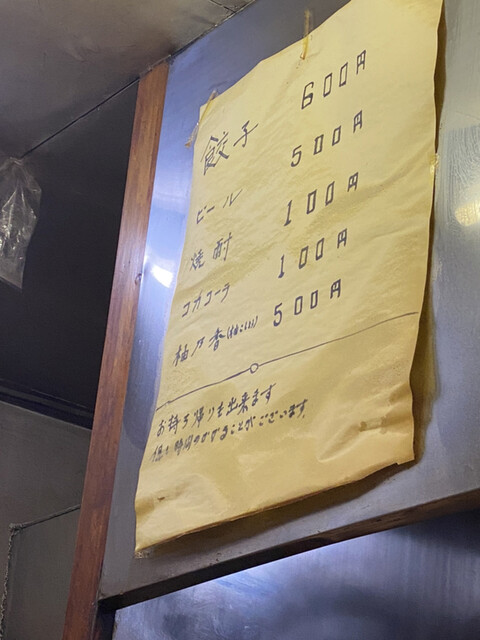 餃子 600円
ビール 500円
焼酎 100円
コカコーラ 100円
柚乃香 500円
お持ち帰りも出来ます
時間のかかることがございます